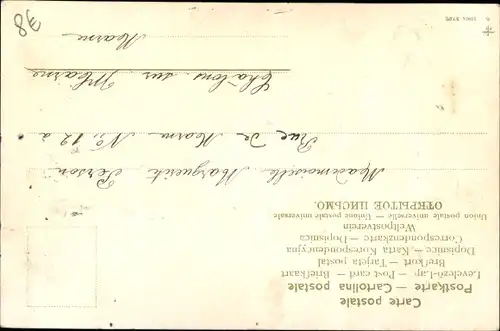 Carte postale
Postkarte — Cartolina postale
Levelező-Lap — Post card — Briefkaart
Brefkort — Tarjeta postal
Dopisnice — Karta Korespondencyjna
Correspondenzkarte — Dopisnica
Weltpostverein
Union postale universelle — Unione postale universale
ОТКРЫТОЕ ПИСЬМО.
Mademoiselle Marguerite Person
Rue de Marne No 12 à
Châlons sur Marne
Marne
38